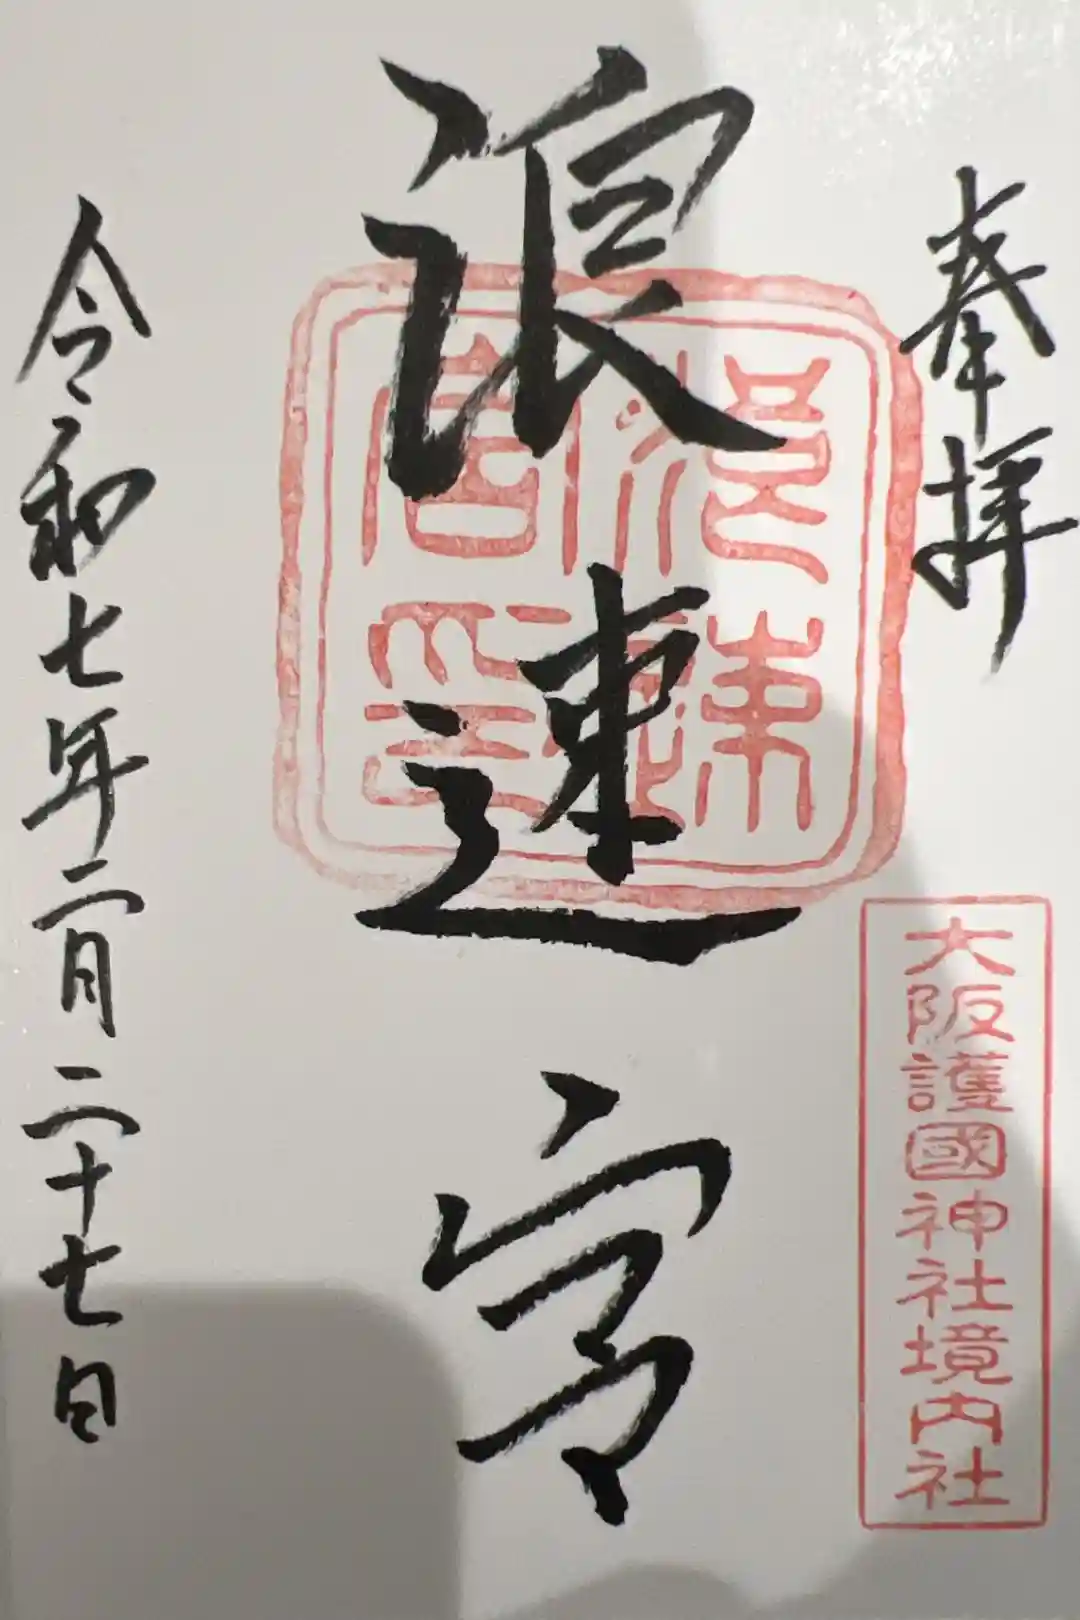 奉拝
大阪護國神社境内社
浪速宮
浪速宮印
令和七年二月二十七日